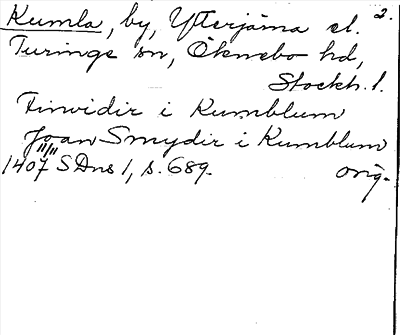 Kumla, by, Ytterjärna el. 2.
Turinge sn, Öknebo hd,
Stockh. l.
Finvidir i Kumblum
Joan Smydir i Kumblum
1407 11/11 SDns 1, s. 689. orig.